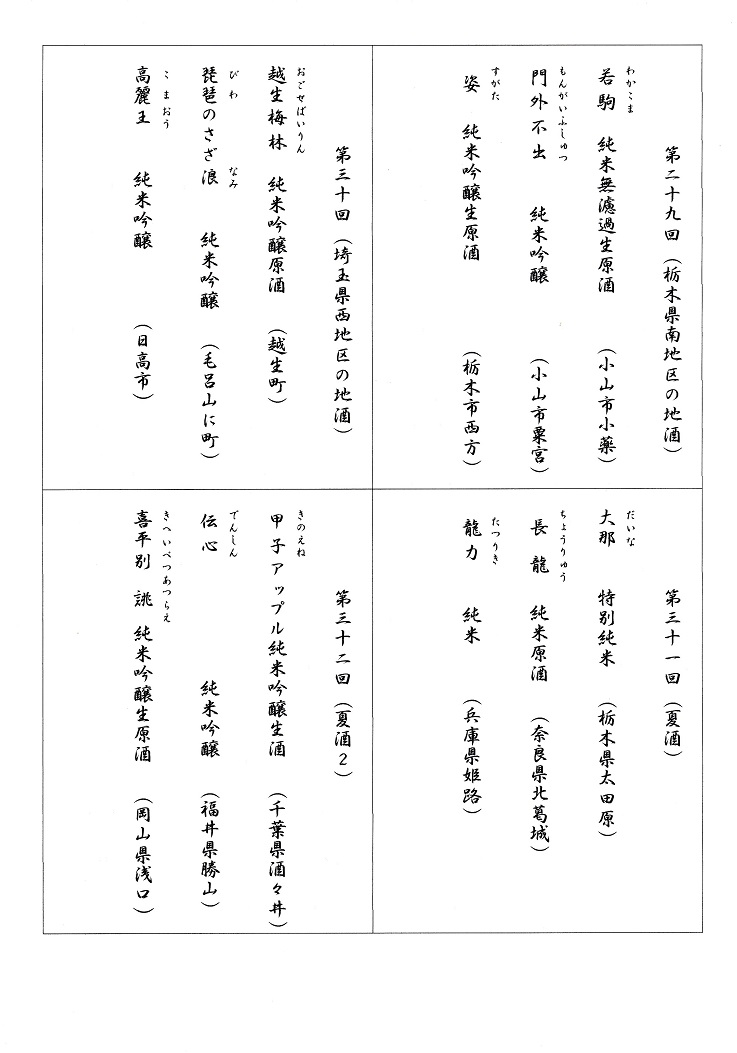 第二十九回（栃木県南地区の地酒）
わかこま
若駒 純米無濾過生原酒 （小山市小薬）
もんがいふしゅつ
門外不出 純米吟醸 （小山市粟宮）
すがた
姿 純米吟醸生原酒 （栃木市西方）
第三十回（埼玉県西地区の地酒）
おごせばいりん
越生梅林 純米吟醸原酒 （越生町）
びわ なみ
琵琶のさざ浪 純米吟醸 （毛呂山に町）
こまおう
高麗王 純米吟醸 （日高市）
第三十一回（夏酒）
だいな
大那 特別純米 （栃木県太田原）
ちょうりゅう
長龍 純米原酒 （奈良県北葛城）
たつりき
龍力 純米 （兵庫県姫路）
第三十二回（夏酒２）
きのえね
甲子アップル純米吟醸生酒 （千葉県酒々井）
でんしん
伝心 純米吟醸 （福井県勝山）
きへいべつあつらえ
喜平別誂 純米吟醸生原酒 （岡山県浅口）